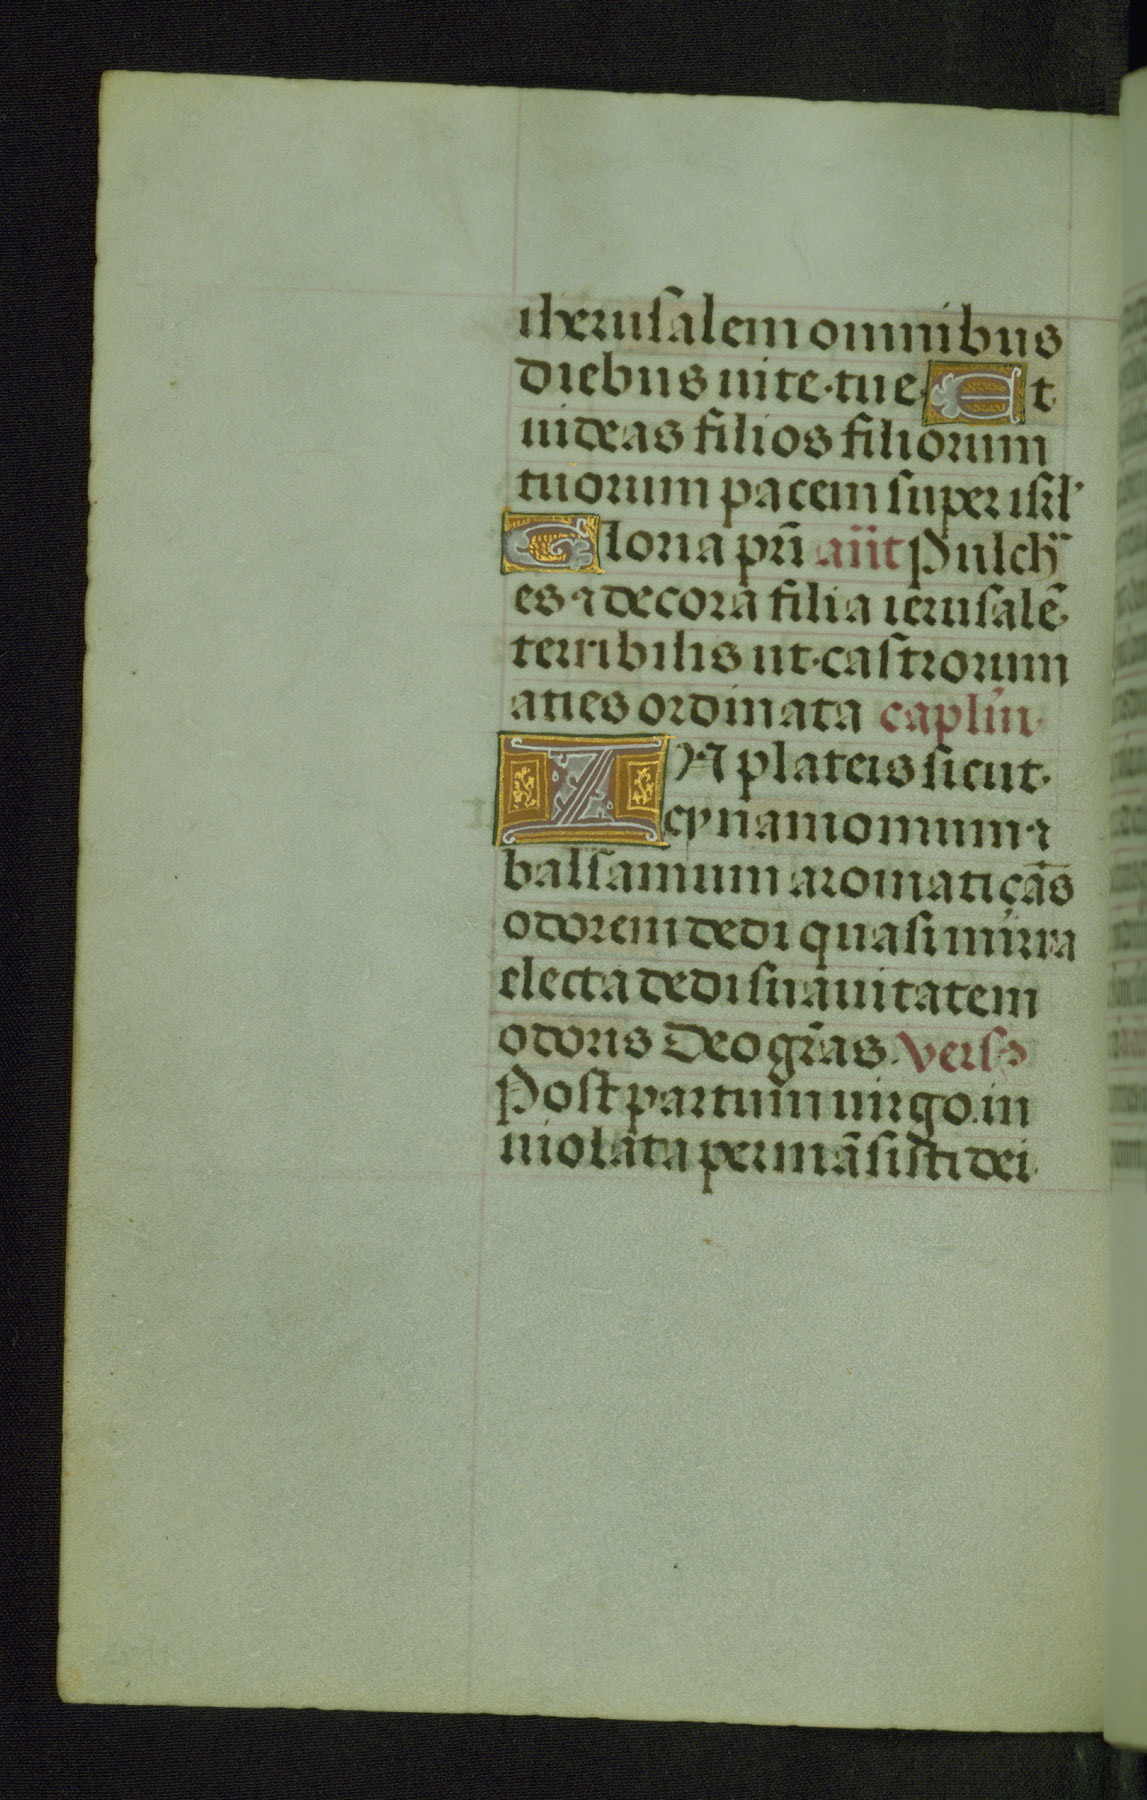 iherusalem omnibus
diebus uite tue. Et
uideas filios filiorum
tuorum pacem super isrl'
Gloria pr̄i an̄t Pulch'
es ⁊ decora filia ierusalē
terribilis ut castrorum
aties ordinata caplm̄
IN plateis sicut
cynamomum ⁊
balsamum aromatiçās
odorem dedi quasi mirra
electa dedi suauitatem
odoris Deo grās. Vers
Post partum uirgo in
uiolata permāsisti dei